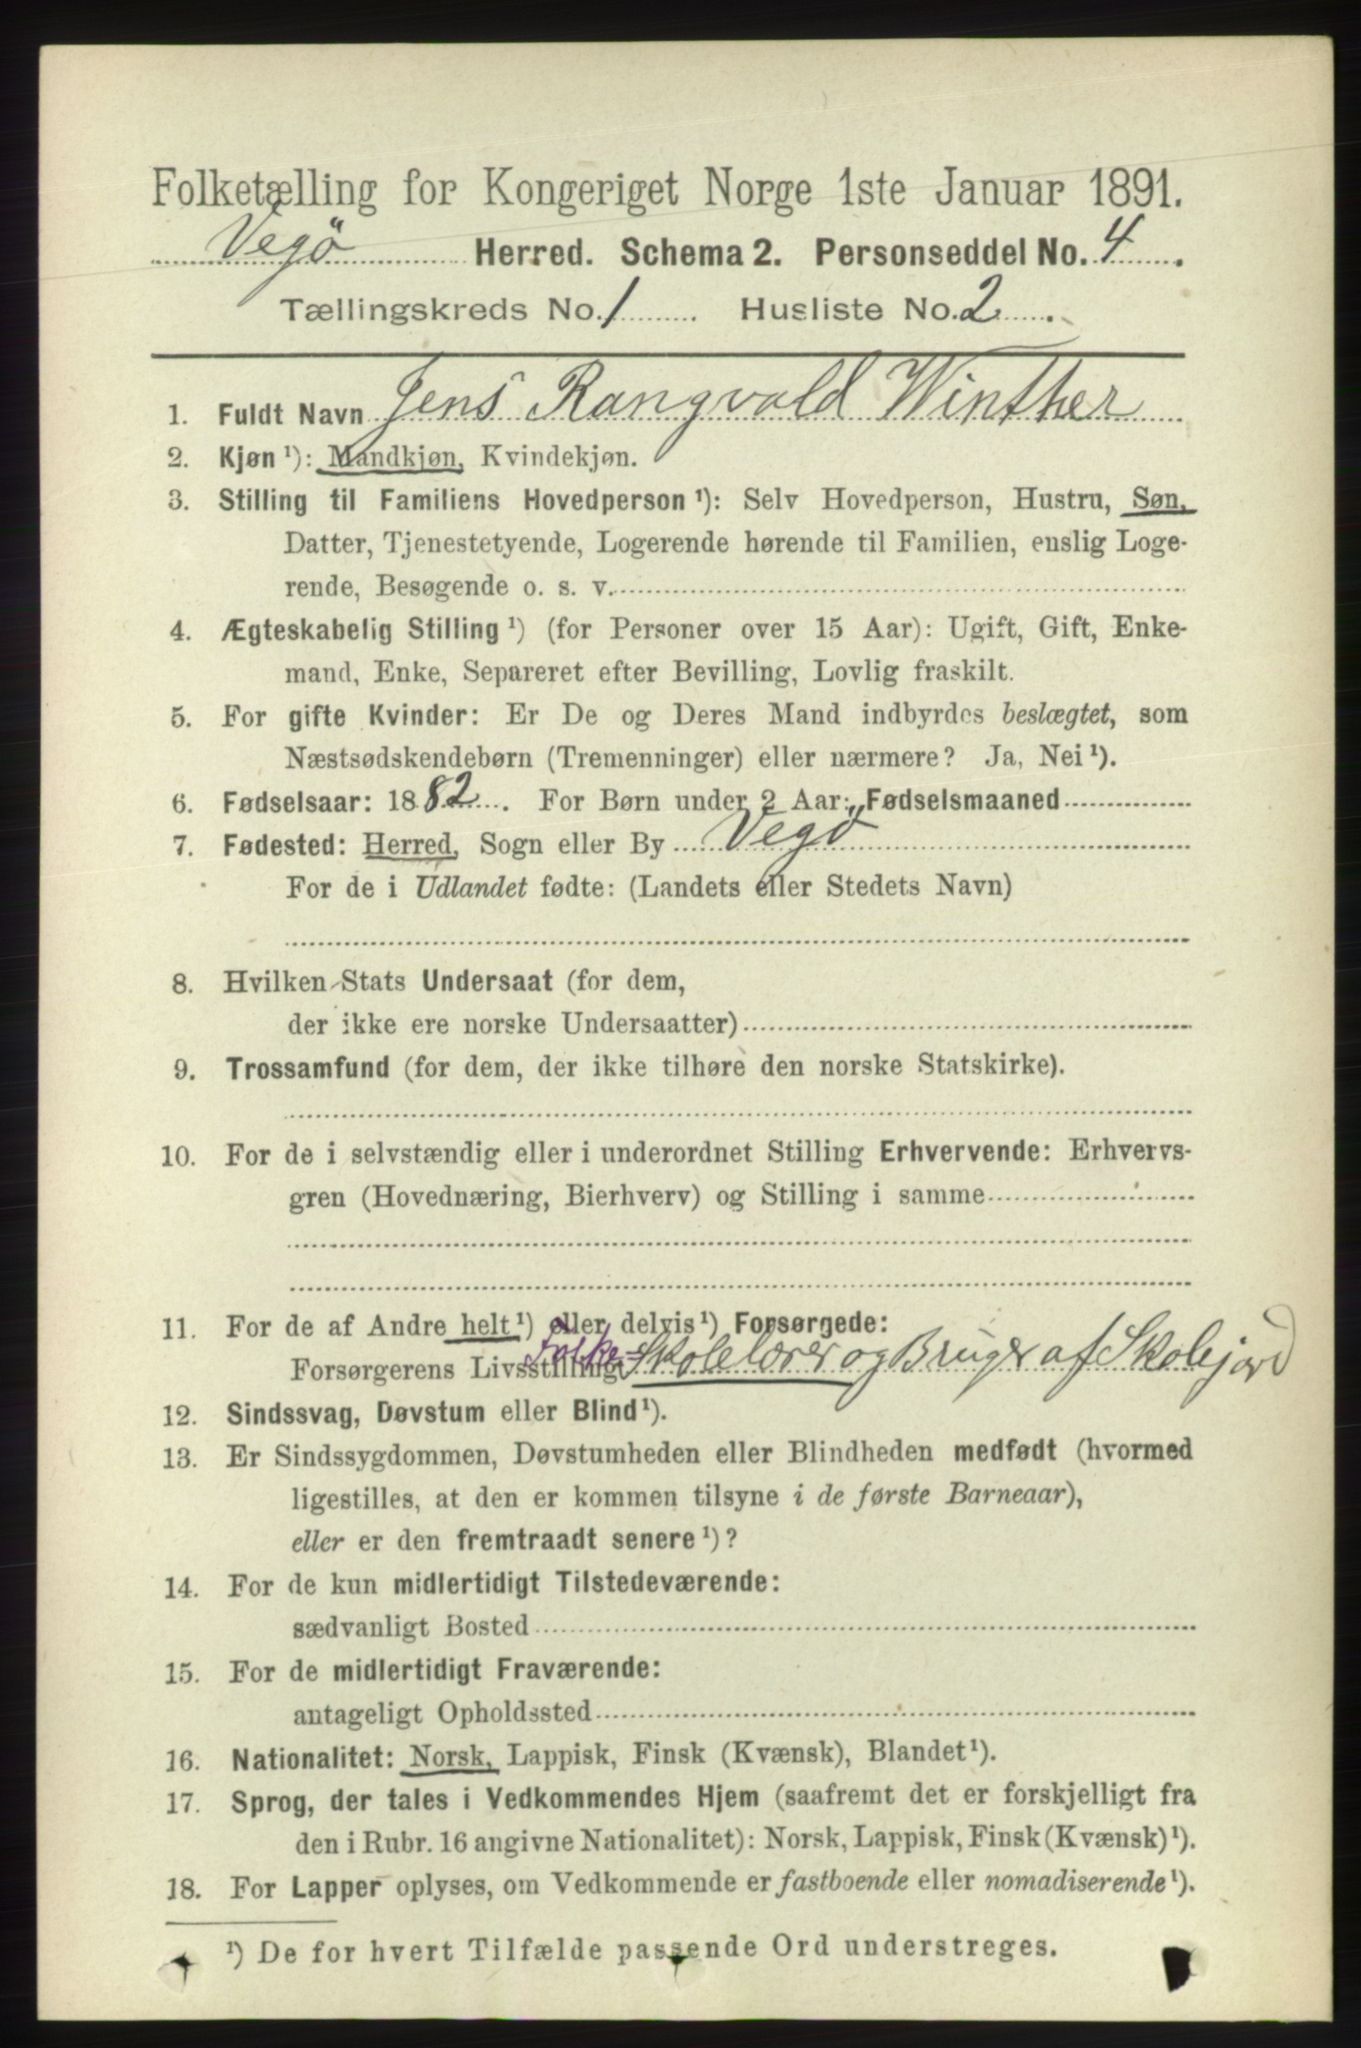 Folketælling for Kongeriget Norge 1ste Januar 1891.
Vegö Herred. Schema 2. Personseddel No. 4.
Tællingskreds No. 1. Husliste No. 2.
1. Fuldt Navn Jens Rangvald Winther
2. Kjøn ¹): Mandkjøn, Kvindekjøn.
3. Stilling til Familiens Hovedperson ¹): Selv Hovedperson, Hustru, Søn,
Datter, Tjenestetyende, Logerende hørende til Familien, enslig Loge-
rende, Besøgende o. s. v.
4. Ægteskabelig Stilling ¹) (for Personer over 15 Aar): Ugift, Gift, Enke-
mand, Enke, Separeret efter Bevilling, Lovlig fraskilt.
5. For gifte Kvinder: Er De og Deres Mand indbyrdes beslægtet, som
Næstsødskendebørn (Tremenninger) eller nærmere? Ja, Nei ¹).
6. Fødselsaar: 1882. For Børn under 2 Aar: Fødselsmaaned
7. Fødested: Herred, Sogn eller By Vegö
For de i Udlandet fødte: (Landets eller Stedets Navn)
8. Hvilken Stats Undersaat (for dem,
der ikke ere norske Undersaatter)
9. Trossamfund (for dem, der ikke tilhøre den norske Statskirke).
10. For de i selvstændig eller i underordnet Stilling Erhvervende: Erhvervs-
gren (Hovednæring, Bierhverv) og Stilling i samme
11. For de af Andre helt ¹) eller delvis ¹) Forsørgede:
Forsørgerens Livsstilling Folke= Skolelærer og Bruger af Skolejord
12. Sindssvag, Døvstum eller Blind ¹).
13. Er Sindssygdommen, Døvstumheden eller Blindheden medfødt (hvormed
ligestilles, at den er kommen tilsyne i de første Barneaar),
eller er den fremtraadt senere ¹)?
14. For de kun midlertidigt Tilstedeværende:
sædvanligt Bosted
15. For de midlertidigt Fraværende:
antageligt Opholdssted
16. Nationalitet: Norsk, Lappisk, Finsk (Kvænsk), Blandet ¹).
17. Sprog, der tales i Vedkommendes Hjem (saafremt det er forskjelligt fra
den i Rubr. 16 angivne Nationalitet): Norsk, Lappisk, Finsk (Kvænsk) ¹).
18. For Lapper oplyses, om Vedkommende er fastboende eller nomadiserende ¹).
¹) De for hvert Tilfælde passende Ord understreges.